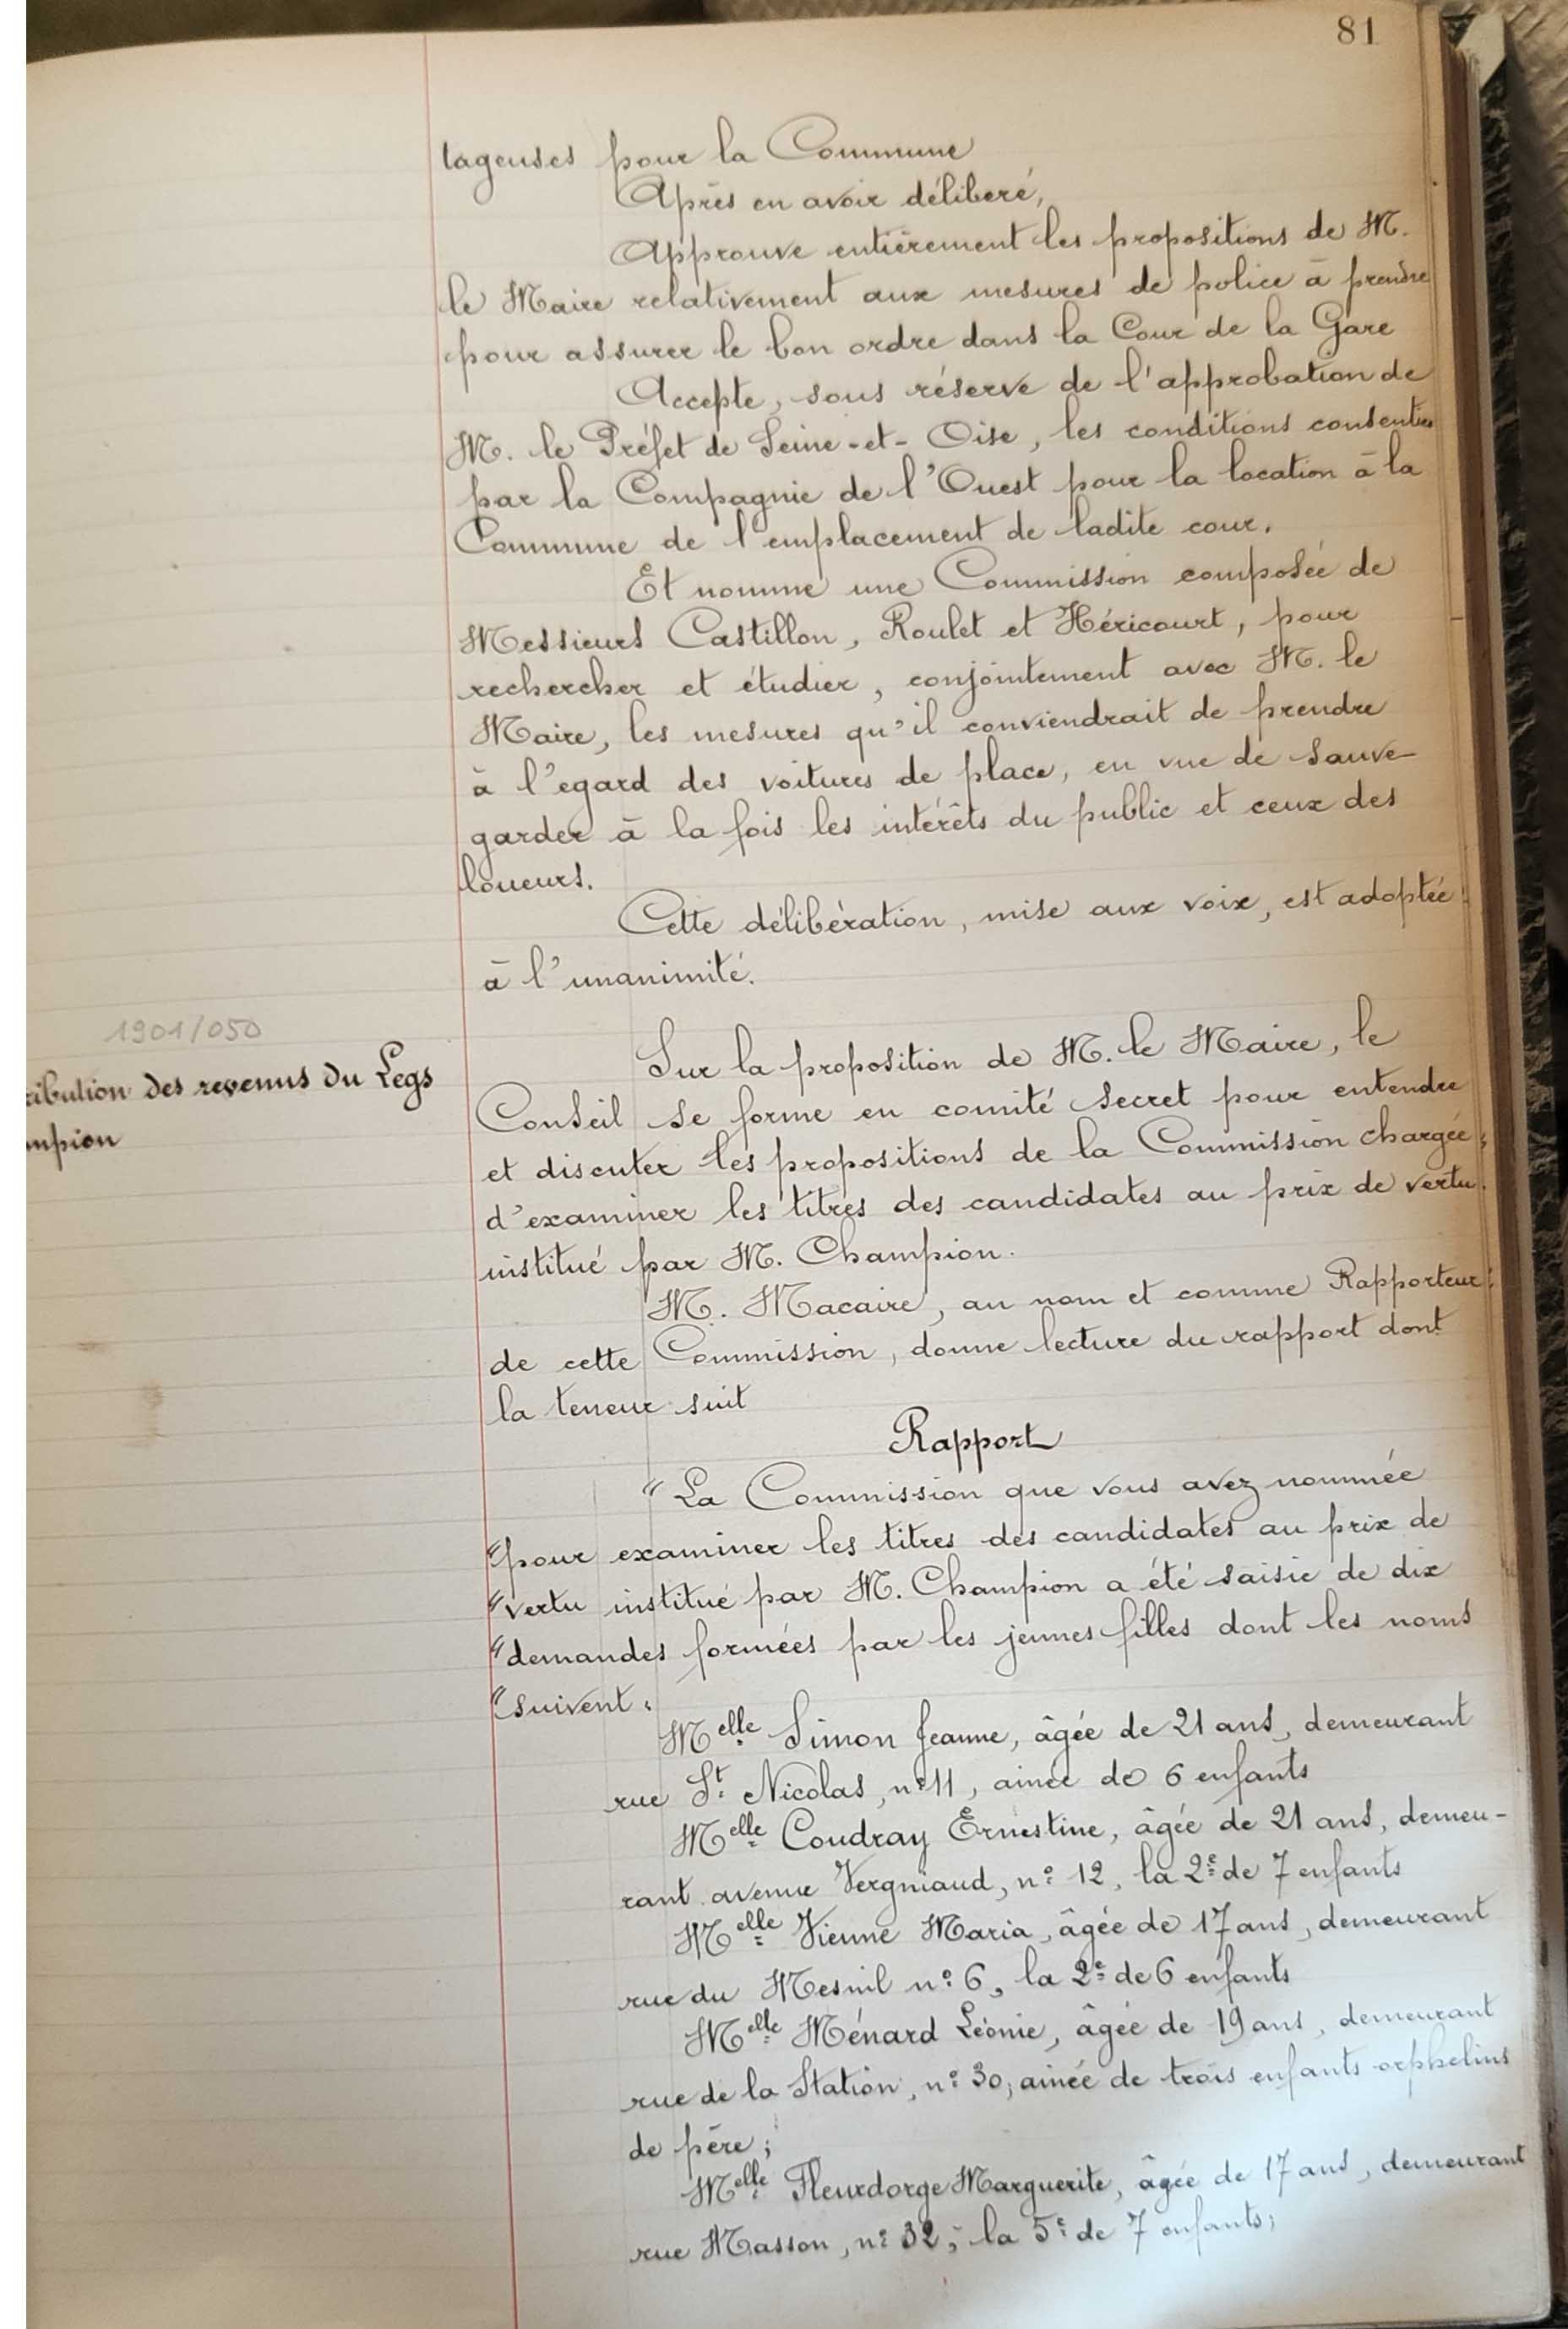 81
tageuses pour la Commune
Après en avoir délibéré,
Approuve entièrement les propositions de M.
le Maire relativement aux mesures de police à prendre
pour assurer le bon ordre dans la Cour de la Gare
Accepte, sous réserve de l'approbation de
M. le Préfet de Seine-et-Oise, les conditions consenties
par la Compagnie de l'Ouest pour la location à la
Commune de l'emplacement de ladite cour.
Et nomme une Commission composée de
Messieurs Castillon, Roulet et Héricourt, pour
rechercher et étudier, conjointement avec M. le
Maire, les mesures qu'il conviendrait de prendre
à l'egard des voitures de place, en vue de sauve-
garder à la fois les intérêts du public et ceux des
loueurs.
Cette délibération, mise aux voix, est adoptée
à l'unanimité.
1901/050
ribution des revenus du Legs
mpion
Sur la proposition de M. le Maire, le
Conseil se forme en comité secret pour entendre
et discuter les propositions de la Commission chargée
d'examiner les titres des candidates au prix de vertu
institué par M. Champion.
M. Macaire, au nom et comme Rapporteur
de cette Commission, donne lecture du rapport dont
la teneur suit
Rapport
"La Commission que vous avez nommée
"pour examiner les titres des candidates au prix de
"vertu institué par M. Champion a été saisie de dix
"demandes formées par les jeunes filles dont les noms
"suivent :
Melle Simon Jeanne, âgée de 21 ans, demeurant
rue St Nicolas, n° 11, ainée de 6 enfants
Melle Coudray Ernestine, âgée de 21 ans, demeu-
rant avenue Vergniaud, n° 12, la 2e de 7 enfants
Melle Vienne Maria, âgée de 17 ans, demeurant
rue du Mesnil n° 6, la 2e de 6 enfants
Melle Ménard Léonie, âgée de 19 ans, demeurant
rue de la Station, n° 30, ainée de trois enfants orphelins
de père;
Melle Fleurdorge Marguerite, âgée de 17 ans, demeurant
rue Masson, n° 32, la 5e de 7 enfants;